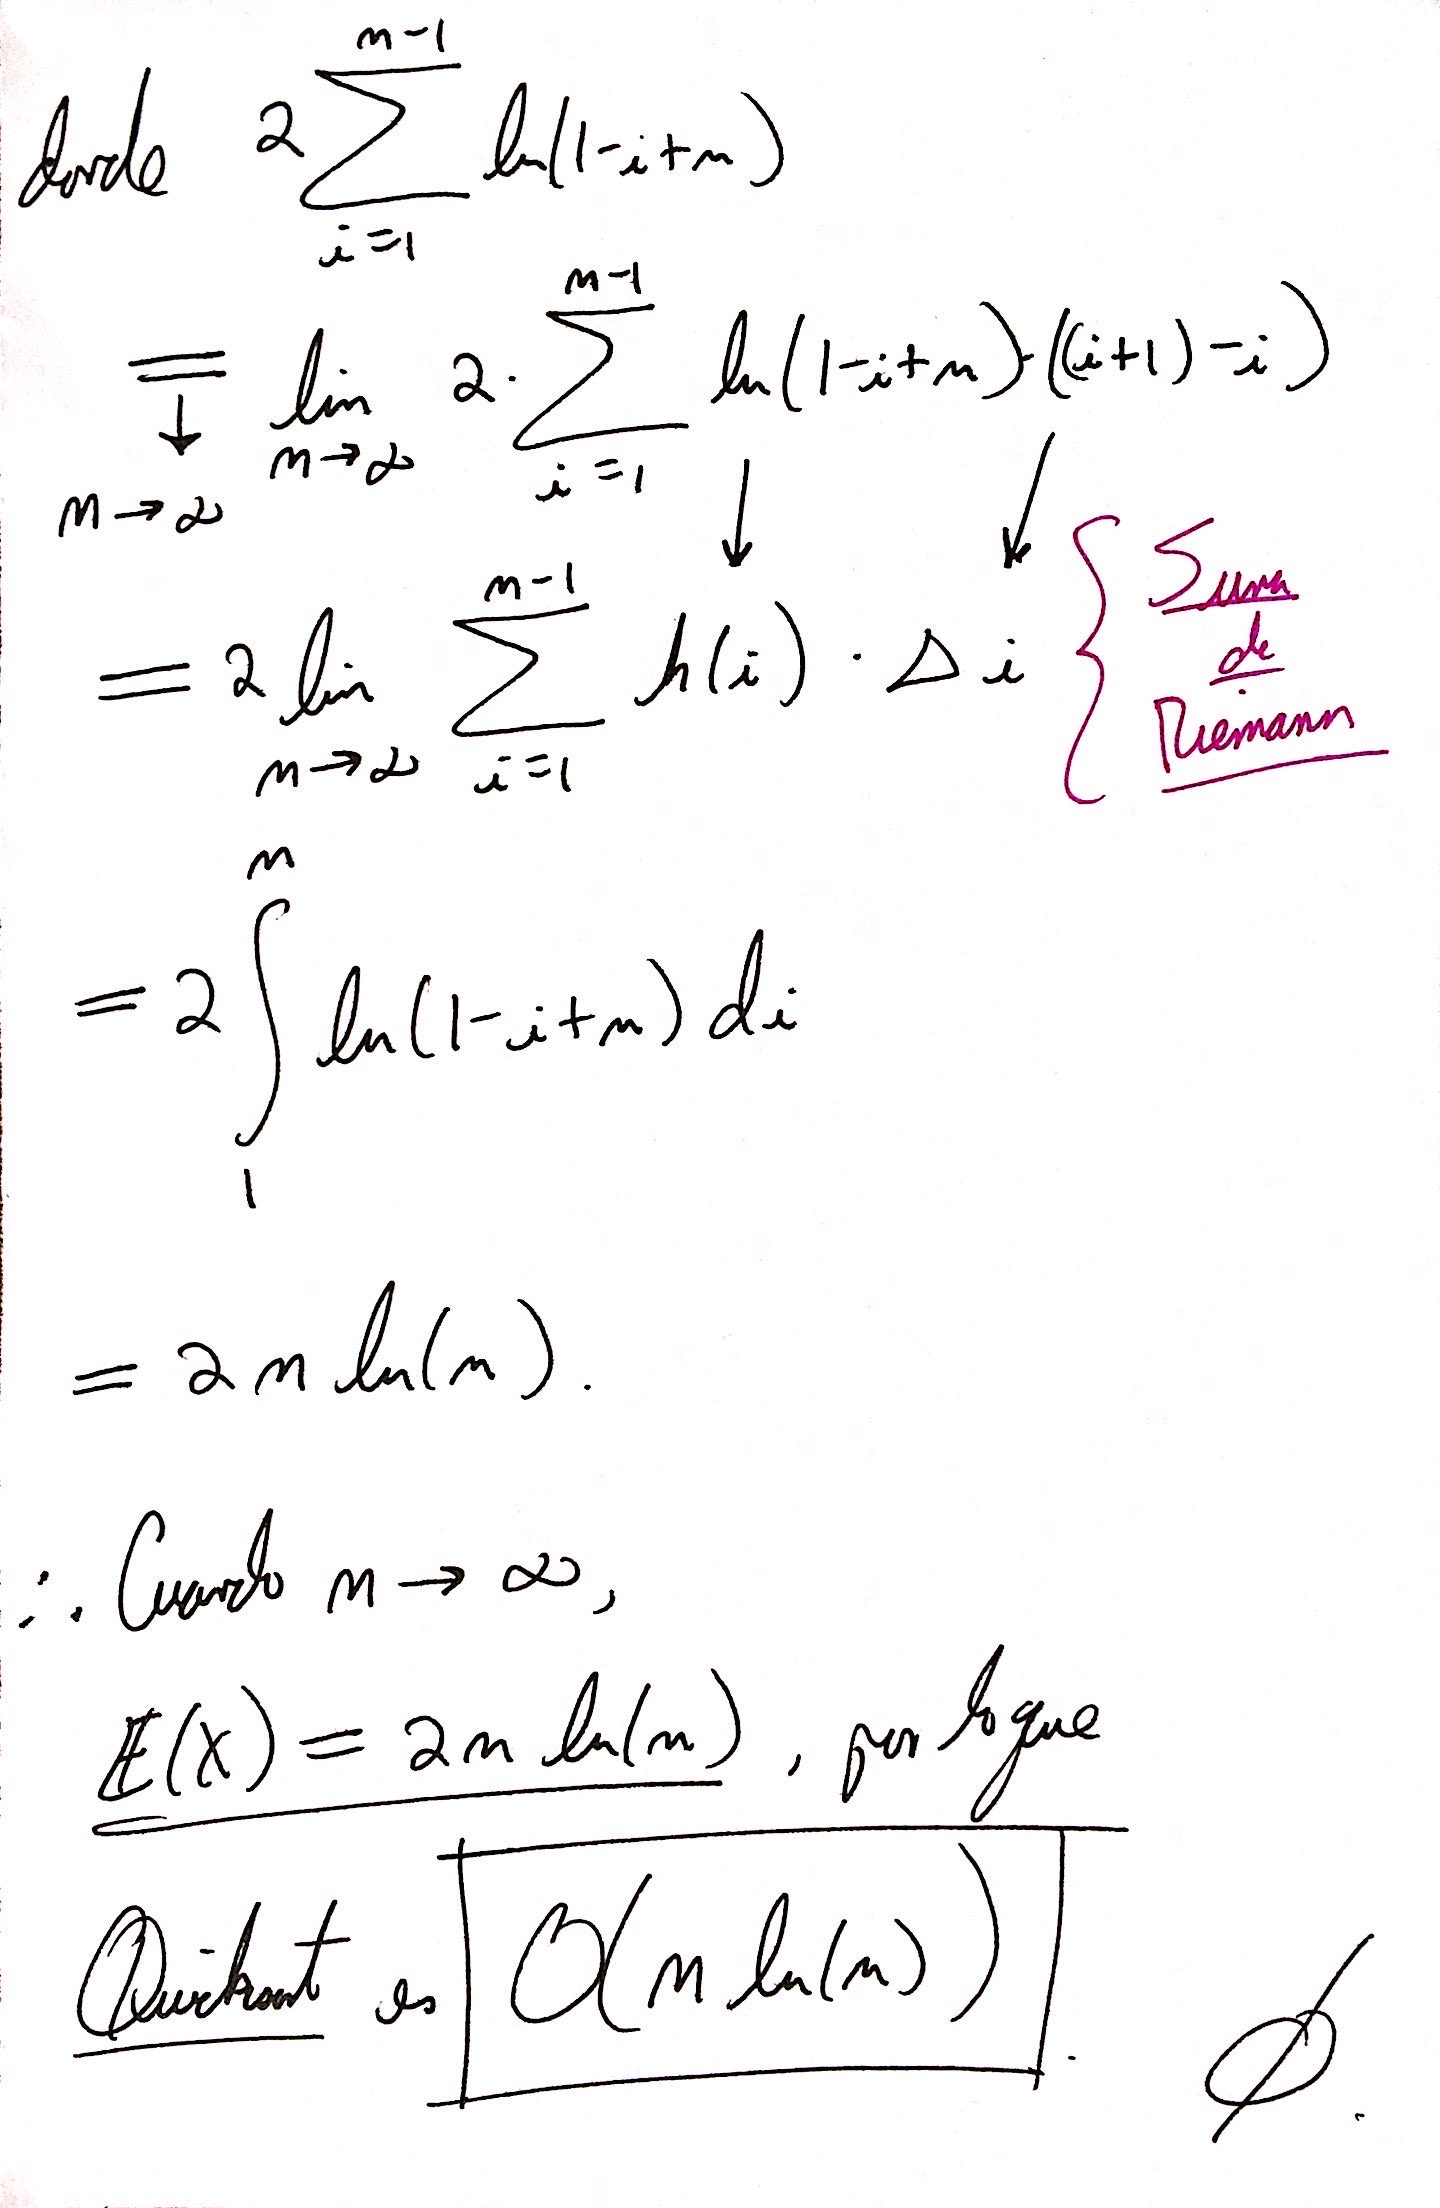 donde 2 ∑_{i=1}^{n-1} ln(1-i+n)
= ↓ n→∞ lim_{n→∞} 2 · ∑_{i=1}^{n-1} ln(1-i+n) · ((i+1)-i)
= 2 lim_{n→∞} ∑_{i=1}^{n-1} h(i) · Δi { Suma de Riemann
= 2 ∫_1^n ln(1-i+n) di
= 2n ln(n).
∴ Cuando n → ∞,
E(X) = 2n ln(n), por lo que
Quicksort es O(n ln(n)).